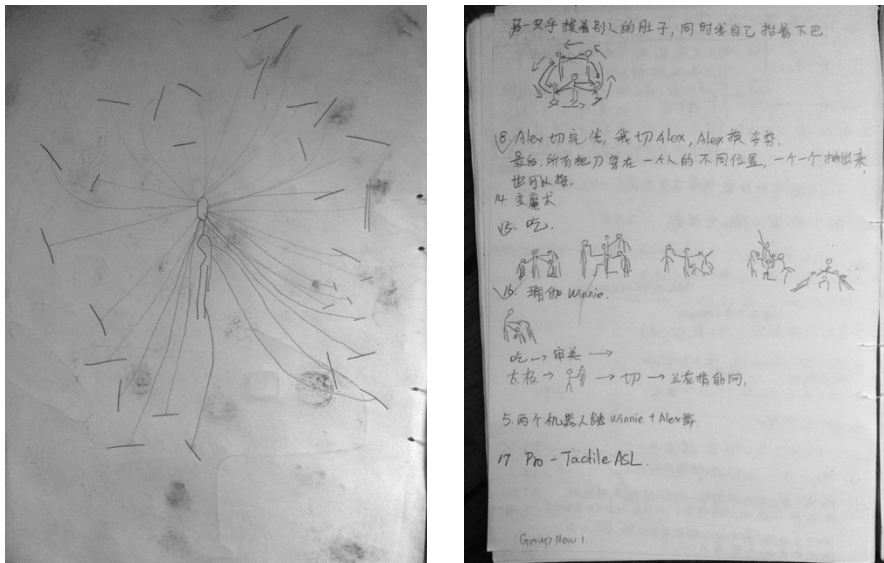 第一只手摸着别人的肚子，同时我自己抬着下巴
8. Alex 切完他, 我切 Alex, Alex 换姿势.
最后, 所有把刀架在一个人的不同位置, 一个一个抽出来,
也可以接.
14 变魔术
15. 吃.
16. 瑜伽 Winnie.
吃 → 审美 →
太极 → → 切 →
5. 两个机器人 Winnie + Alex
17 Pro - Tactile ASL.
Group New 1